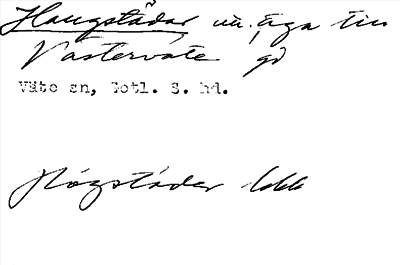 Haugstädar nu äga till
Västerväte gd
Väte sn, Gotl. S. hd.
Högstäder